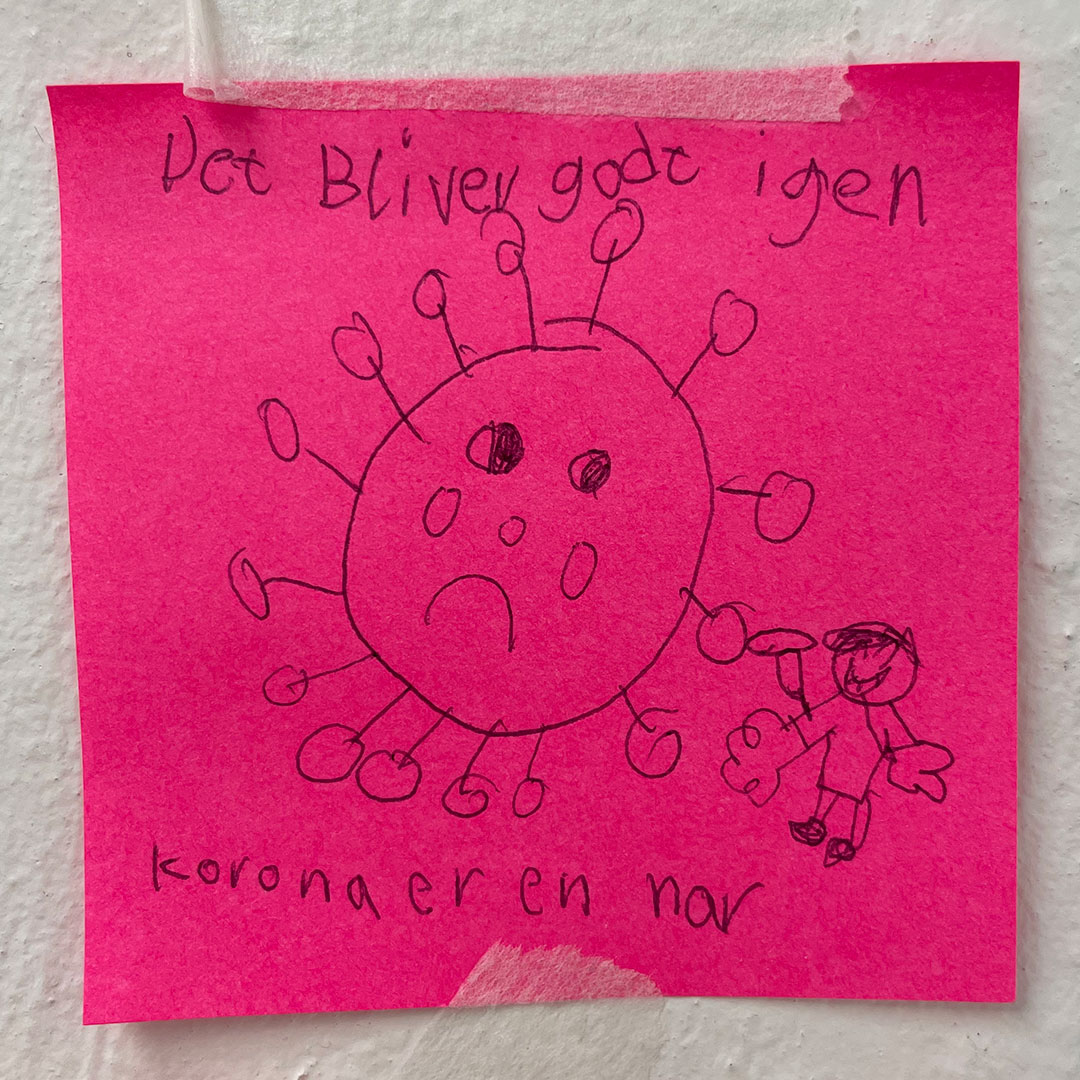 Det Bliver godt igen
korona er en nar